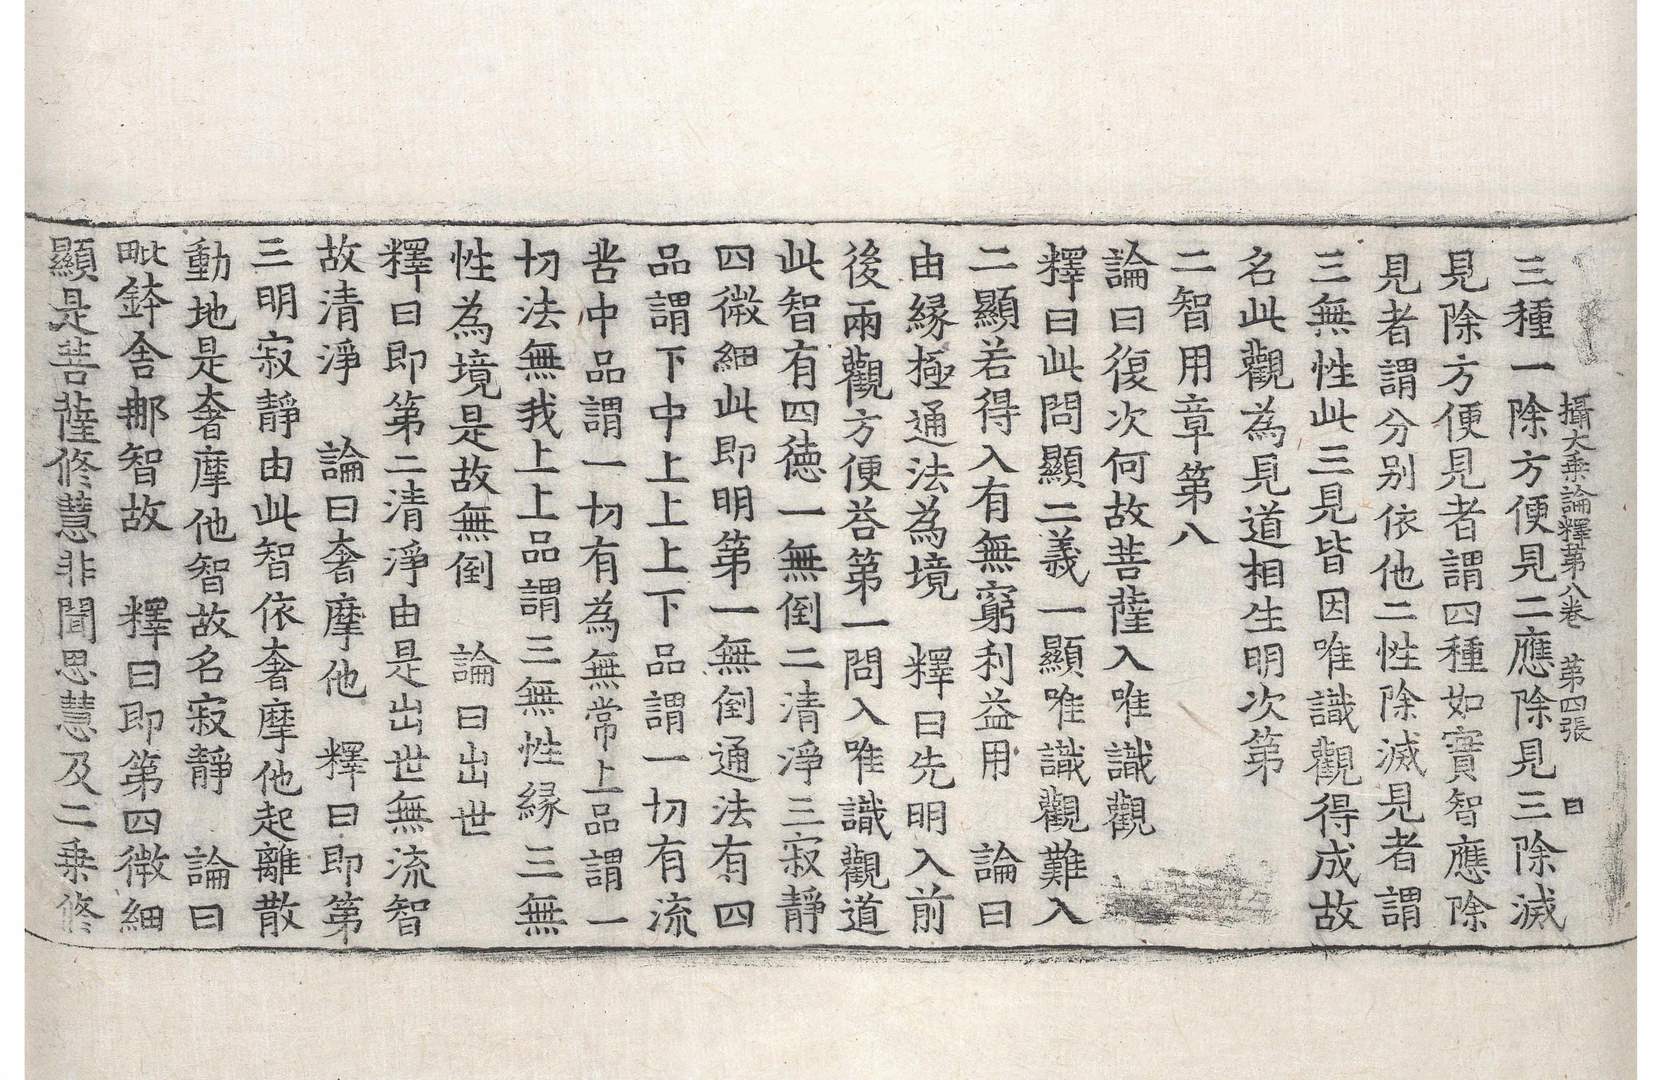 攝大乘論釋第八卷　第四張　曰
三種一除方便見二應除見三除滅
見除方便見者謂四種如實智應除
見者謂分別依他二性除滅見者謂
三無性此三見皆因唯識觀得成故
名此觀為見道相生明次第
二智用章第八
論曰復次何故菩薩入唯識觀
釋曰此問顯二義一顯唯識觀難入
二顯若得入有無窮利益用　論曰
由緣極通法為境　釋曰先明入前
後兩觀方便荅第一問入唯識觀道
此智有四德一無倒二清淨三寂靜
四微細此即明第一無倒通法有四
品謂下中上上上下品謂一切有流
苦中品謂一切有為無常上品謂一
切法無我上上品謂三無性緣三無
性為境是故無倒　論曰出世
釋曰即第二清淨由是出世無流智
故清淨　論曰奢摩他　釋曰即第
三明寂靜由此智依奢摩他起離散
動地是奢摩他智故名寂靜　論曰
毗鉢舍那智故　釋曰即第四微細
顯是菩薩修慧非聞思慧及二乘修